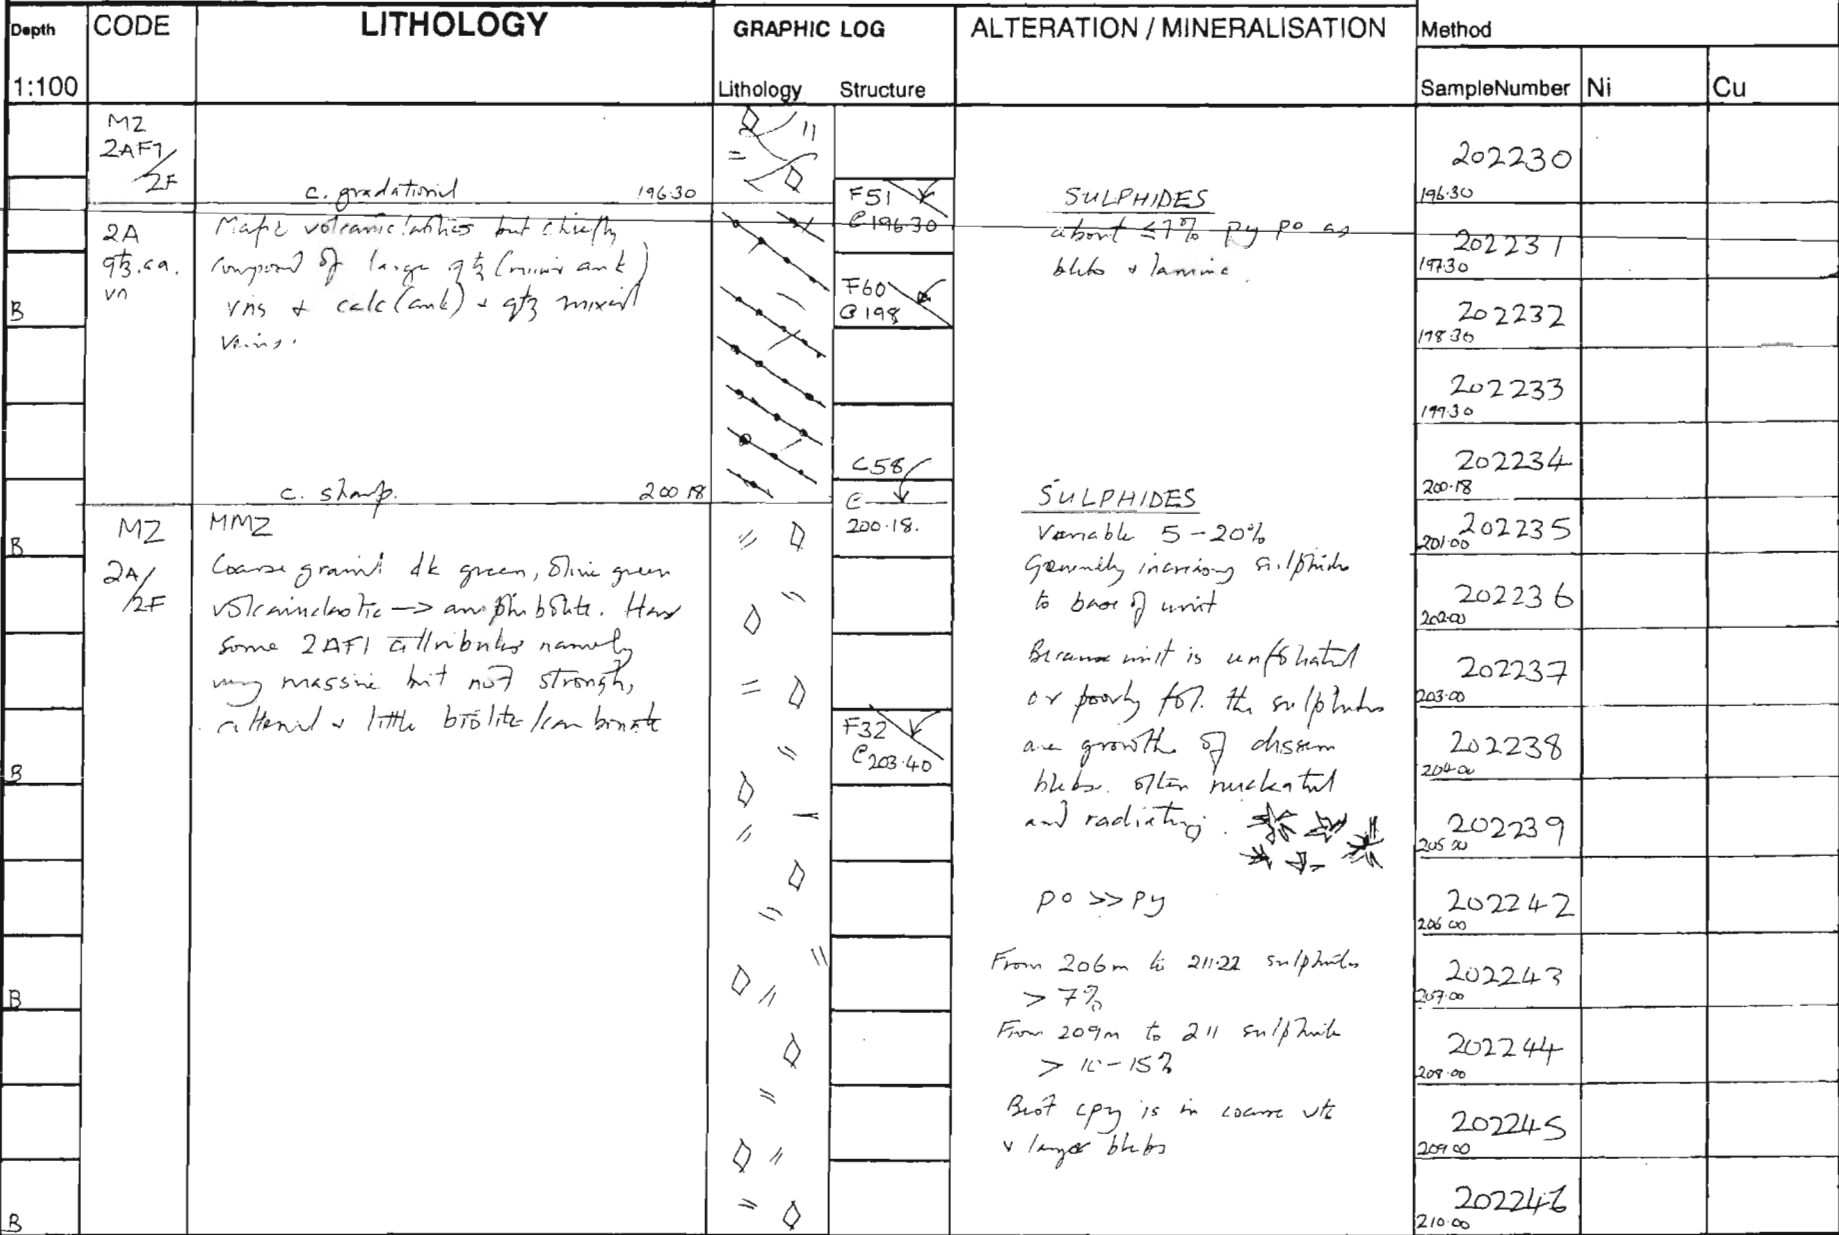 Depth CODE LITHOLOGY GRAPHIC LOG ALTERATION / MINERALISATION Method
1:100 Lithology Structure SampleNumber Ni Cu
MZ
2AF1
/2F
c. gradational 196.30
2A
qtz.ca.
vn
Mafic volcaniclastics but chiefly
composed of large qtz (minor ank)
vns + calc (ank) + qtz mixed
veins.
c. sharp. 200.18
MZ
2A/
/2F
MMZ
Coarse grained dk green, olive green
volcaniclastic → amphibolite. Has
some 2AF1 attributes namely
very massive but not strongly
altered + little biotite/carbonate
B
B
B
B
B
F51
@ 196.30
F60
@ 198
C58
@
200.18.
F32
@ 203.40
SULPHIDES
about ≤1% py po as
blebs + lamine
SULPHIDES
Variable 5-20%
Generally increasing sulphides
to base of unit
Because unit is unfoliated
or poorly fol. the sulphides
are growths of dissem
blebs. often nucleated
and radiating.
po >> py
From 206m to 211.22 sulphides
> 7%
From 209m to 211 sulphide
> 10-15%
Best cpy is in coarse
+ larger blebs
202230
196.30
202231
197.30
202232
198.30
202233
199.30
202234
200.18
202235
201.00
202236
202.00
202237
203.00
202238
204.00
202239
205.00
202242
206.00
202243
207.00
202244
208.00
202245
209.00
202246
210.00